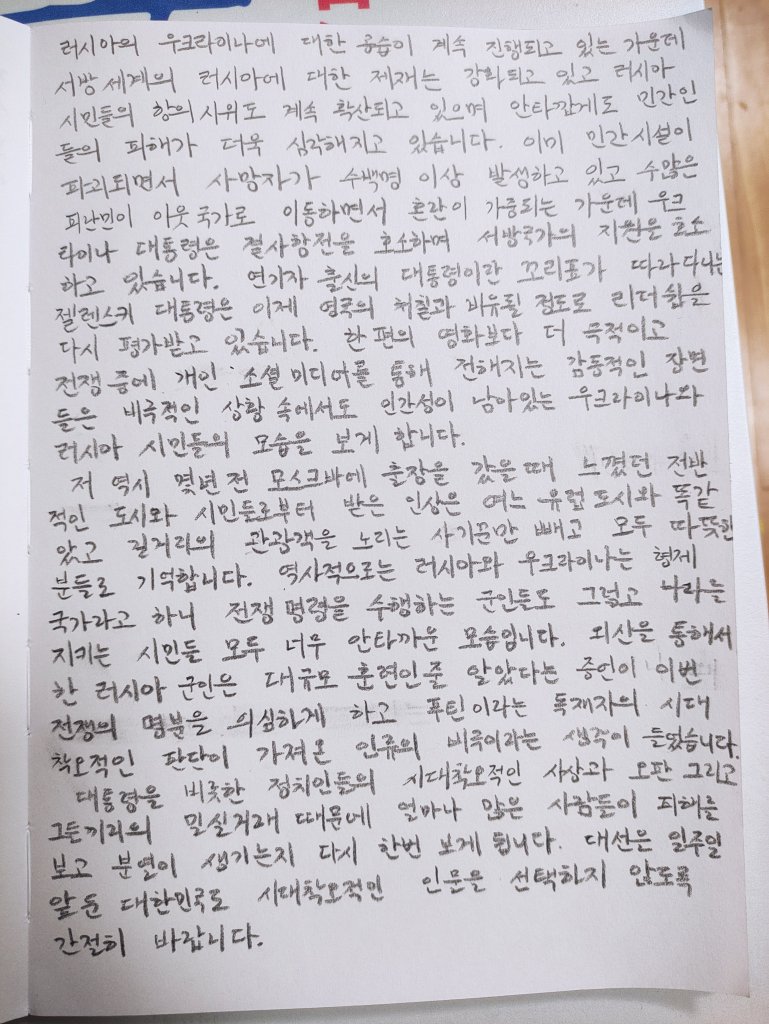 러시아의 우크라이나에 대한 공습이 계속 진행되고 있는 가운데
서방 세계의 러시아에 대한 제재는 강화되고 있고 러시아
시민들의 항의 시위도 계속 확산되고 있으며 안타깝게도 민간인
들의 피해가 더욱 심각해지고 있습니다. 이미 민간시설이
파괴되면서 사망자가 수백명 이상 발생하고 있고 수많은
피난민이 이웃 국가로 이동하면서 혼란이 가중되는 가운데 우크
라이나 대통령은 결사항전을 호소하며 서방국가의 지원을 호소
하고 있습니다. 연기자 출신의 대통령이란 꼬리표가 따라다니는
젤렌스키 대통령은 이제 영국의 처칠과 비유될 정도로 리더쉽을
다시 평가받고 있습니다. 한 편의 영화보다 더 극적이고
전쟁 중에 개인 소셜 미디어를 통해 전해지는 감동적인 장면
들은 비극적인 상황 속에서도 인간성이 남아있는 우크라이나와
러시아 시민들의 모습을 보게 합니다.
저 역시 몇년 전 모스크바에 출장을 갔을 때 느꼈던 전반
적인 도시와 시민들로부터 받은 인상은 여느 유럽 도시와 똑같
았고 길거리의 관광객을 노리는 사기꾼만 빼고 모두 따뜻한
분들로 기억합니다. 역사적으로는 러시아와 우크라이나는 형제
국가라고 하니 전쟁 명령을 수행하는 군인들도 그렇고 나라를
지키는 시민들 모두 너무 안타까운 모습입니다. 외신을 통해서
한 러시아 군인은 대규모 훈련인줄 알았다는 증언이 이번
전쟁의 명분을 의심하게 하고 푸틴이라는 독재자의 시대
착오적인 판단이 가져온 인류의 비극이라는 생각이 들었습니다.
대통령을 비롯한 정치인들의 시대착오적인 사상과 오판 그리고
그들끼리의 밀실거래 때문에 얼마나 많은 사람들이 피해를
보고 분열이 생기는지 다시 한번 보게 됩니다. 대선은 일주일
앞둔 대한민국도 시대착오적인 인물을 선택하지 않도록
간절히 바랍니다.